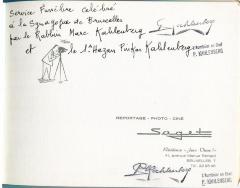 Service Funèbre célébré
à la Synagogue de Bruxelles
par le Rabbin Marc Kahlenberg
et de l'Hazan Pinkas Kahlenberg
L'Aumônier en Chef
P. KAHLENBERG
REPORTAGE - PHOTO - CINÉ
Sagot
Résidence
BRUXELLES 7
L'Aumônier en Chef
P. KAHLENBERG